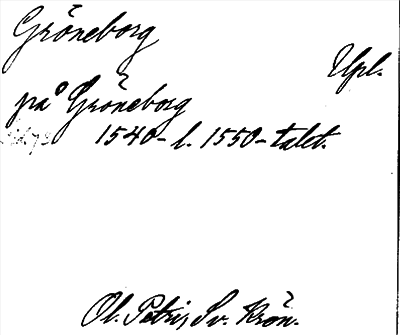 Gröneborg
Upl.
på Gröneborg
1540- l. 1550-talet.
Ol. Petri, Sv. Krön.